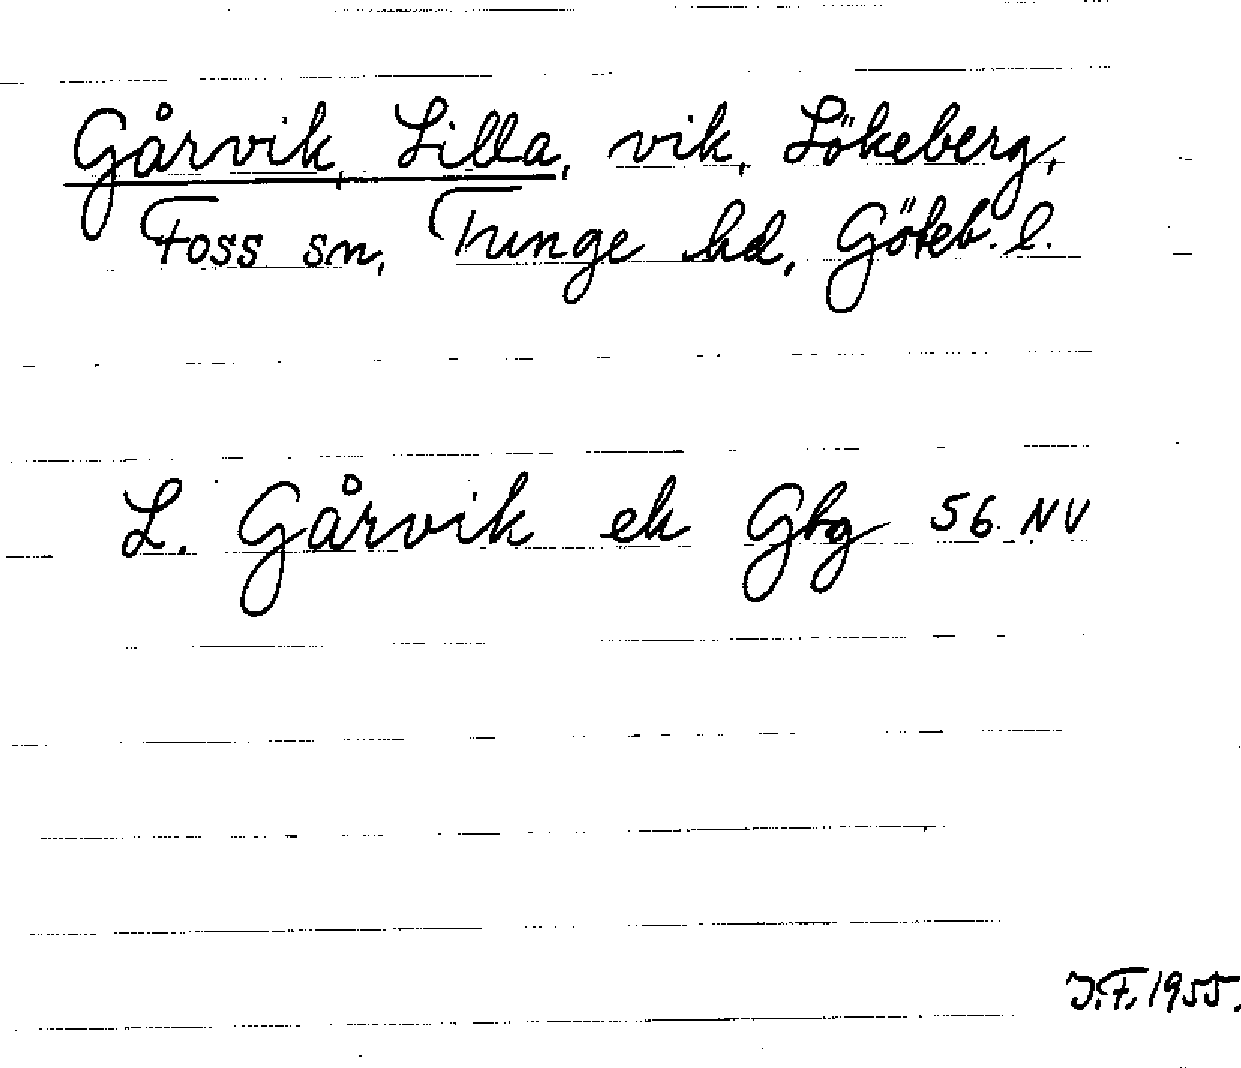 Gårvik, Lilla, vik, Lökeberg,
Foss sn, Tunge hd, Göteb. l.
L. Gårvik ek Gbg 56 NV
J.F. 1955.